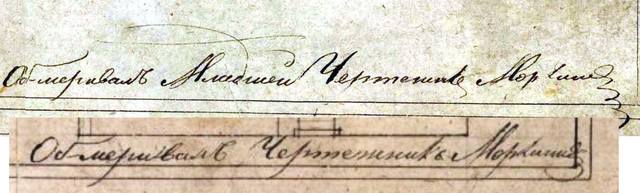 Обмеривалъ Младшей Чертежникъ Моркинъ
Обмеривалъ Чертежникъ Моркинъ